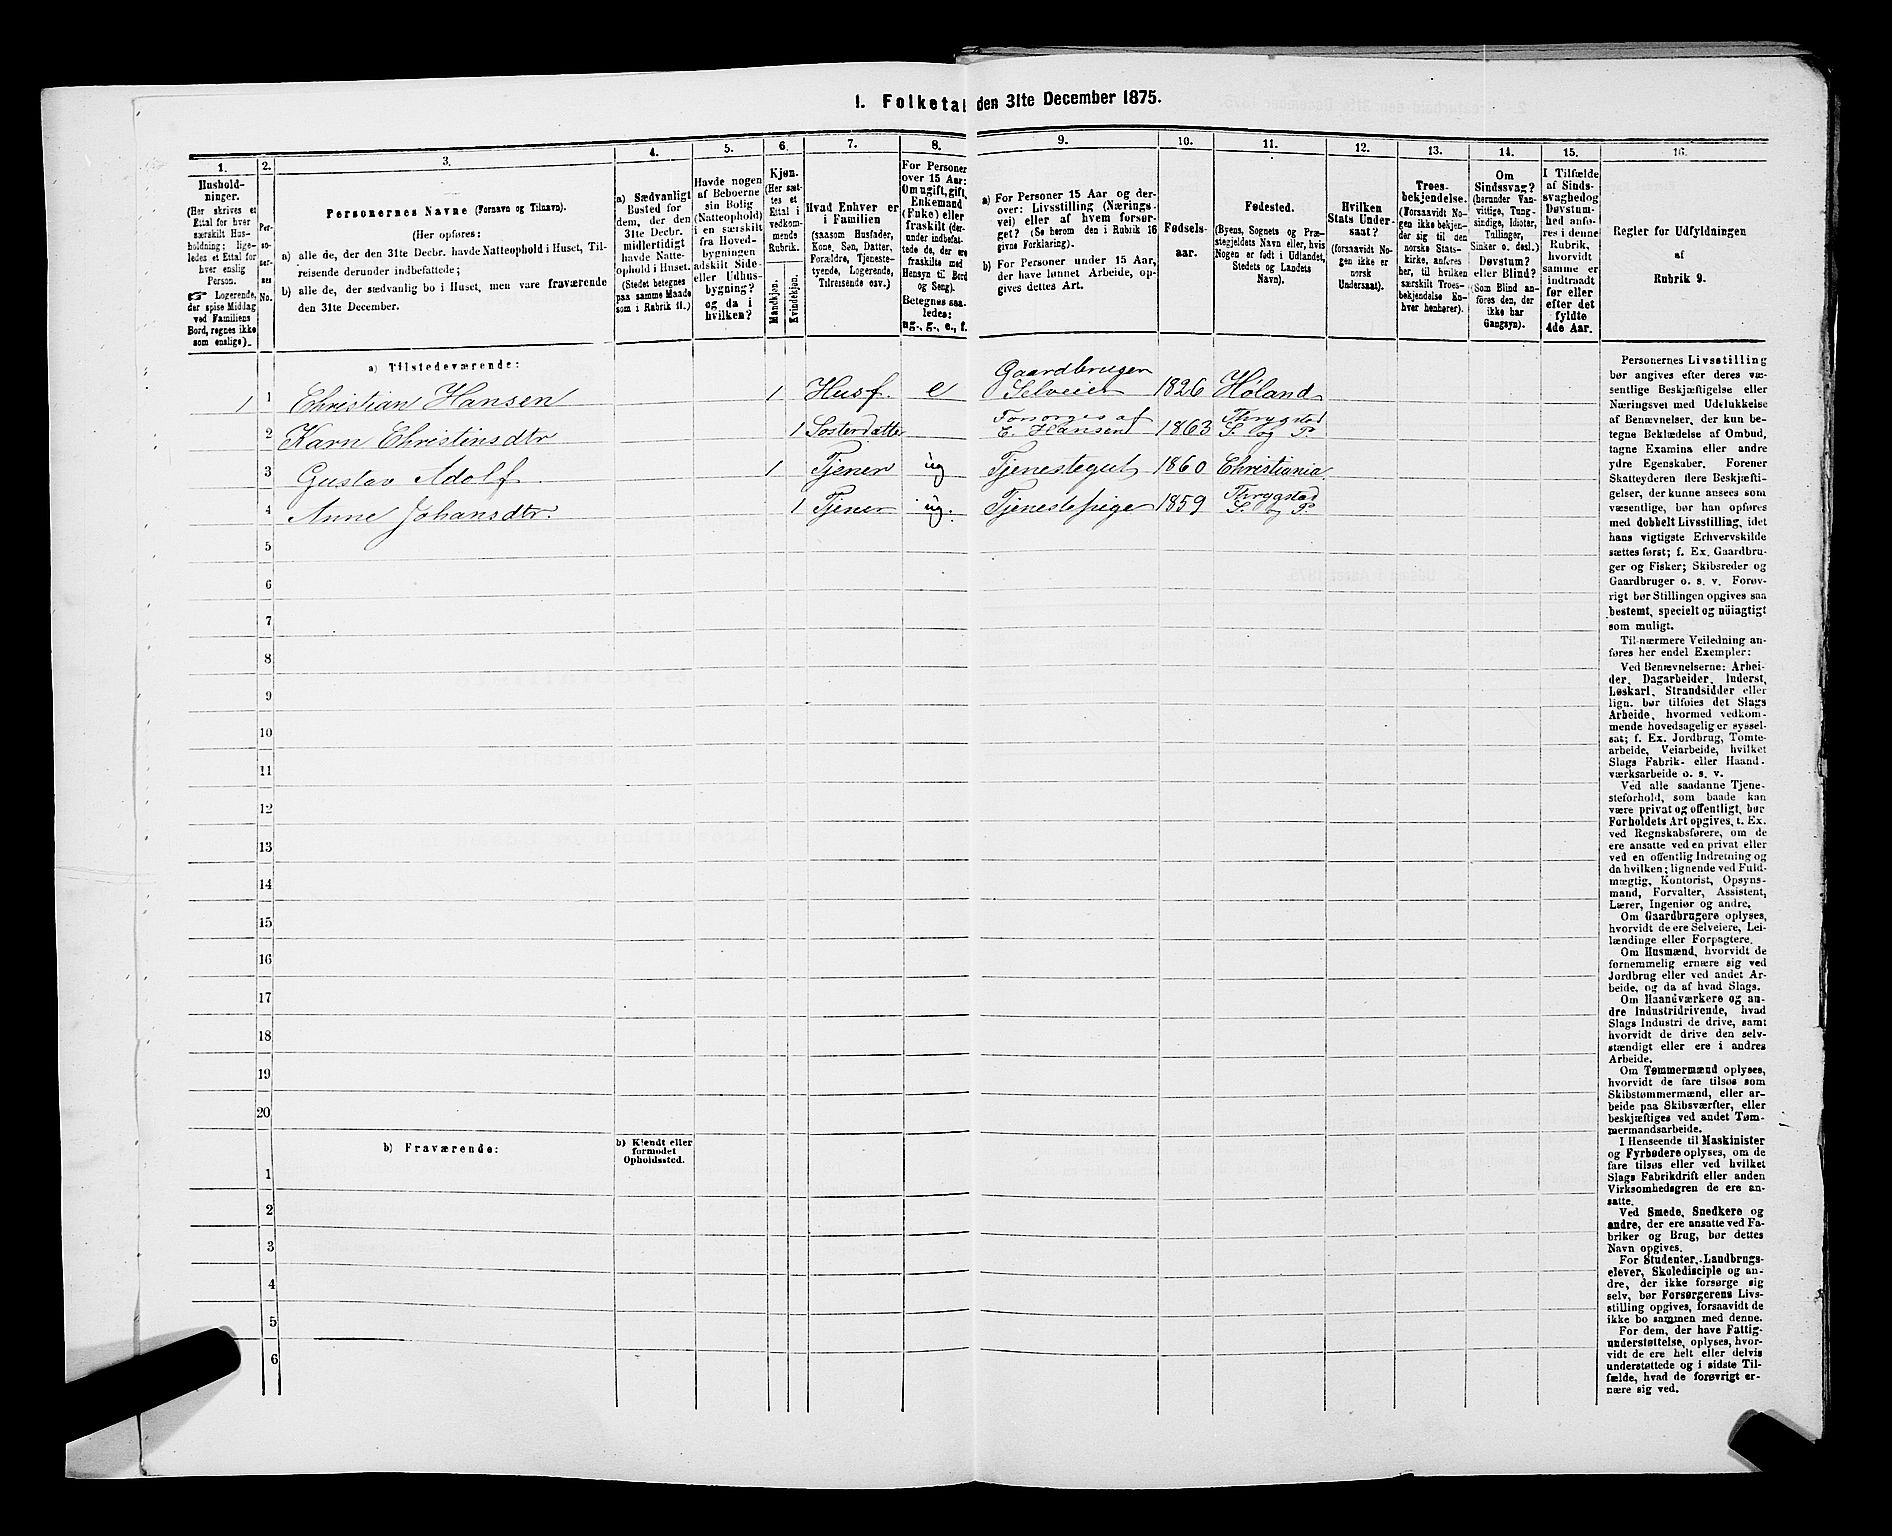 1. Folketal den 31te December 1875.
1. 2. 3. 4. 5. 6. 7. 8. 9. 10. 11. 12. 13. 14. 15. 16.
Hushold-
ninger.
(Her skrives et
Ettal for hver
særskilt Hus-
holdning; lige-
ledes et Ettal for
hver enslig
Person.
☞ Logerende,
der spise Middag
ved Familiens
Bord, regnes ikke
som enslige).
Per-
so-
ner-
nes
No.
Personernes Navne (Fornavn og Tilnavn).
(Her opføres:
a) alle de, der den 31te Decbr. havde Natteophold i Huset, Til-
reisende derunder indbefattede;
b) alle de, der sædvanlig bo i Huset, men vare fraværende
den 31te December.
a) Sædvanligt
Bosted for
dem, der den
31te Decbr.
midlertidigt
havde Natte-
ophold i Huset.
(Stedet betegnes
paa samme Maade
som i Rubrik 11.)
Havde nogen
af Beboerne
sin Bolig
(Natteophold)
i en særskilt
fra Hoved-
bygningen
adskilt Side-
eller Udhus-
bygning?
og da i
hvilken?
Kjøn.
(Her sæt-
tes et
Ettal i
vedkom-
mende
Rubrik.
Mandkjøn.
Kvindekjøn.
Hvad Enhver er
i Familien
(saasom Husfader,
Kone, Søn, Datter,
Forældre, Tjeneste-
tyende, Logerende,
Tilreisende osv.)
For Personer
over 15 Aar:
Om ugift, gift,
Enkemand
(Enke) eller
fraskilt (der-
under indbefat-
tede de, der ere
fraskilte med
Hensyn til Bord
og Seng).
Betegnes saa-
ledes:
ug., g., e., f.
a) For Personer 15 Aar og der-
over: Livsstilling (Nærings-
vei) eller af hvem forsør-
get? (Se herom den i Rubrik 16
givne Forklaring).
b) For Personer under 15 Aar,
der have lønnet Arbeide, op-
gives dettes Art.
Fødsels-
aar.
Fødested.
(Byens, Sognets og Præ-
stegjeldets Navn eller, hvis
Nogen er født i Udlandet,
Stedets og Landets
Navn).
Hvilken
Stats Under-
saat?
(forsaavidt No-
gen ikke er
norsk
Undersaat).
Troes-
bekjendelse.
(Forsaavidt No-
gen ikke bekjen-
der sig til den
norske Stats-
kirke, anføres
her, til hvilken
særskilt Troes-
bekjendelse En-
hver henhører).
Om
Sindssvag?
(herunder Van-
vittige, Tung-
sindige, Idioter,
Tullinger,
Sinker o. desl.)
Døvstum?
eller Blind?
(Som Blind an-
føres den, der
ikke har
Gangsyn).
I Tilfælde
af Sinds-
svaghed og
Døvstum-
hed anfø-
res i denne
Rubrik,
hvorvidt
samme er
indtraadt
før eller
efter det
fyldte
4de Aar.
Regler for Udfyldningen
af
Rubrik 9.
a) Tilstedeværende:
1 1 Christian Hansen 1 Husf. e Gaardbruger
Selveier 1826 Høland
2 Karn Christinsdtr 1 Søsterdatter Forsørges af
C. Hansen 1863 Thrygstad
S. og P.
3 Gustav Adolf 1 Tjener ug Tjenestegut 1860 Christiania
4 Anne Johansdtr. 1 Tjener ug. Tjenestepige 1859 Thrygstad
S. og P.
5
6
7
8
9
10
11
12
13
14
15
16
17
18
19
20
b) Fraværende:
b) Kjendt eller
formodet
Opholdssted.
1
2
3
4
5
6
Personernes Livsstilling
bør angives efter deres væ-
sentlige Beskjæftigelse eller
Næringsvei med Udelukkelse
af Benævnelser, der kun be-
tegne Beklædelse af Ombud,
tagne Examina eller andre
ydre Egenskaber. Forener
Skatteyderen flere Beskjæfti-
gelser, der kunne ansees som
væsentlige, bør han opføres
med dobbelt Livsstilling, idet
hans vigtigste Erhvervskilde
sættes først; f. Ex. Gaardbru-
ger og Fisker; Skibsreder og
Gaardbruger o. s. v. Forøv-
rigt bør Stillingen opgives saa
bestemt, specielt og nöiagtigt
som muligt.
Til nærmere Veiledning an-
føres her endel Exempler:
Ved Benævnelserne: Arbei-
der, Dagarbeider, Inderst,
Løskarl, Strandsidder eller
lign. bør tilføies det Slags
Arbeide, hvormed vedkom-
mende hovedsagelig er syssel-
sat; f. Ex. Jordbrug, Tomte-
arbeide, Veiarbeide, hvilket
Slags Fabrik- eller Haand-
værksarbeide o. s. v.
Ved alle saadanne Tjene-
steforhold, som baade kan
være privat og offentligt, bør
Forholdets Art opgives, t. Ex.
ved Regnskabsførere, om de
ere ansatte ved en privat eller
ved en offentlig Indretning og
da hvilken; lignende ved Fuld-
mægtig, Kontorist, Opsyns-
mand, Forvalter, Assistent,
Lærer, Ingeniør og andre.
Om Gaardbrugere oplyses,
hvorvidt de ere Selveiere, Lei-
lændinge eller Forpagtere.
Om Husmænd, hvorvidt de
fornemmelig ernære sig ved
Jordbrug eller ved andet Ar-
beide, og da af hvad Slags.
Om Haandværkere og an-
dre Industridrivende, hvad
Slags Industri de drive, samt
hvorvidt de drive den selv-
stændigt eller ere i andres
Arbeide.
Om Tømmermænd oplyses,
hvorvidt de fare tilsøs som
Skibstømmermænd, eller ar-
beide paa Skibsværfter, eller
beskjæftiges ved andet Tøm-
mermandsarbeide.
I Henseende til Maskinister
og Fyrbødere oplyses, om de
fare tilsøs eller ved hvilket
Slags Fabrikdrift eller anden
Virksomhedsgren de ere an-
satte.
Ved Smede, Snedkere og
andre, der ere ansatte ved Fa-
briker og Brug, bør dettes
Navn opgives.
For Studenter, Landbrugs-
elever, Skoledisciple og an-
dre, der ikke forsørge sig
selv, bør Forsørgerens Livs-
stilling opgives, forsaavidt de
ikke bo sammen med denne.
For dem, der have Fattig-
understøttelse, oplyses, hvor-
vidt de ere helt eller delvis
understøttede og i sidste Til-
fælde, hvad de forøvrigt er-
nære sig ved.